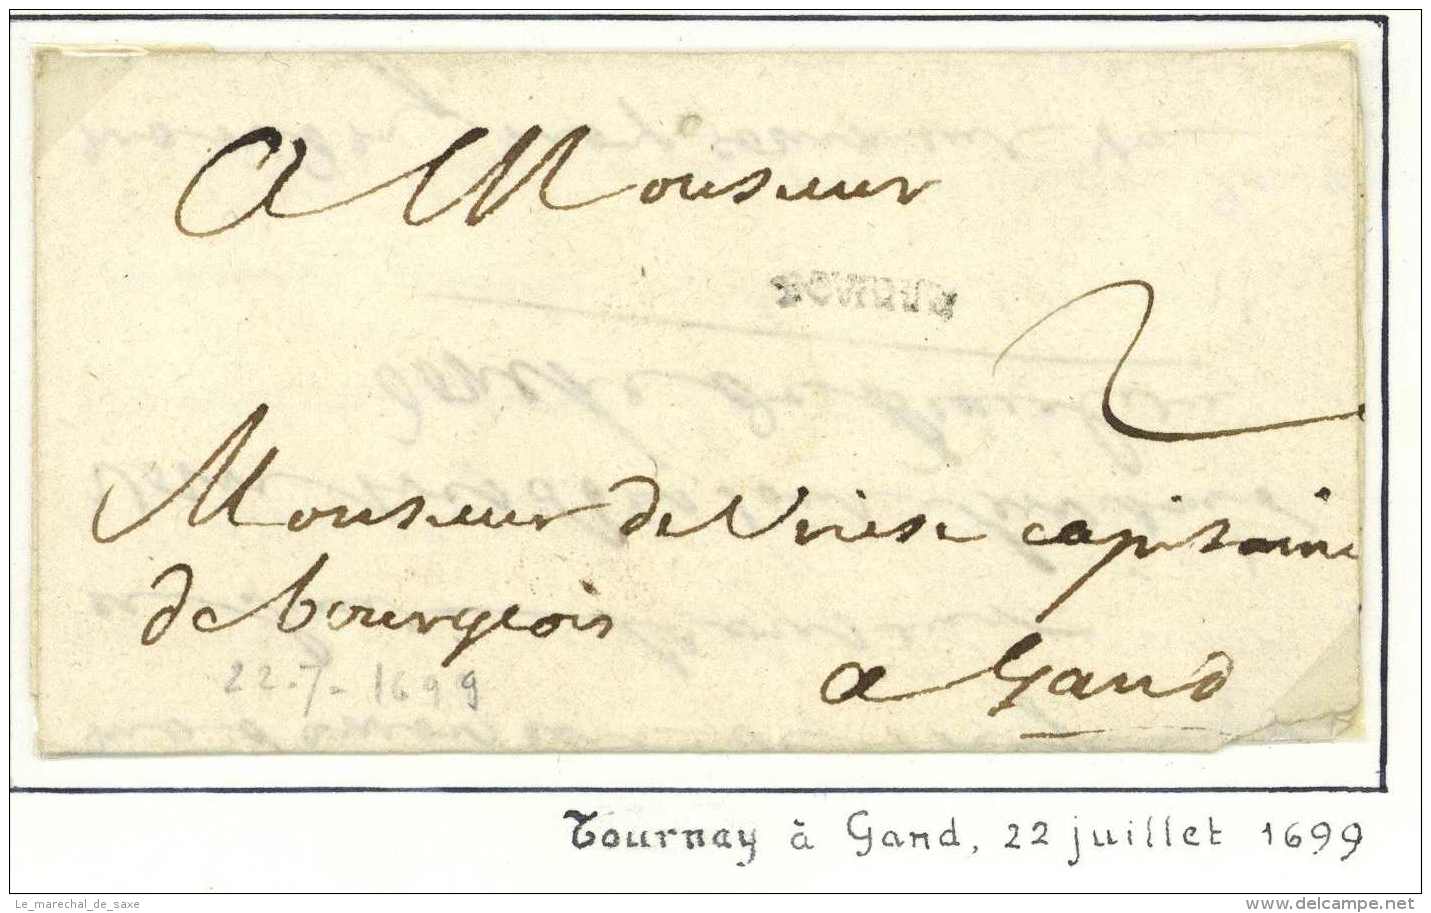 A Monsieur
2
Monsieur de Vriese capitaine
de bourgeois
a Gand
22-7-1699
Tournay à Gand, 22 juillet 1699
Le_marechal_de_saxe
www.delcampe.net